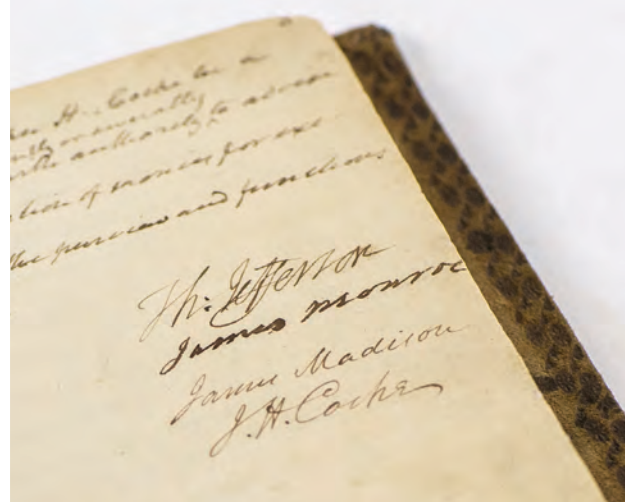 H. Cocke be a
generally
authority to advise
of monies for exe
the powers and functions
Th: Jefferson
James Monroe
James Madison
J.H. Cocke